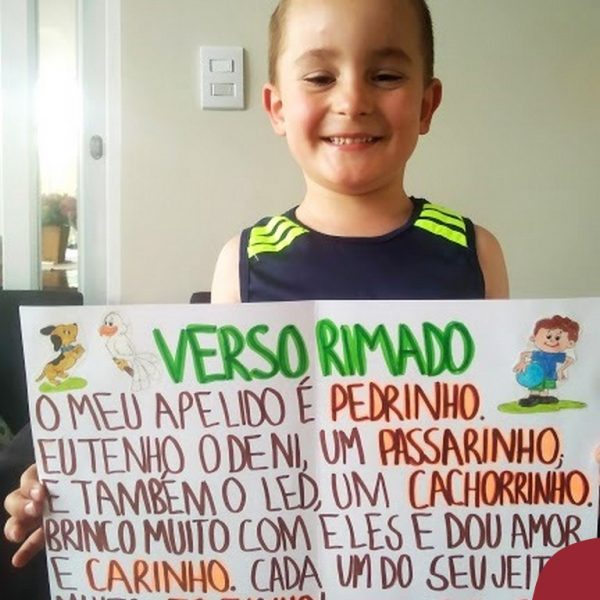 VERSO RIMADO
O MEU APELIDO É PEDRINHO.
EU TENHO O DENI, UM PASSARINHO;
E TAMBÉM O LED, UM CACHORRINHO.
BRINCO MUITO COM ELES E DOU AMOR
E CARINHO. CADA UM DO SEU JEIT